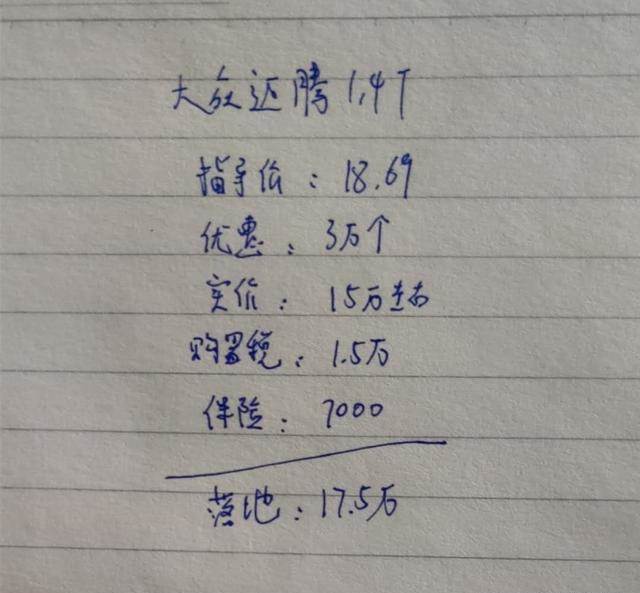 大众迈腾1.4T
指导价：18.69
优惠：3万个
实价：15万左右
购置税：1.5万
保险：7000
落地：17.5万